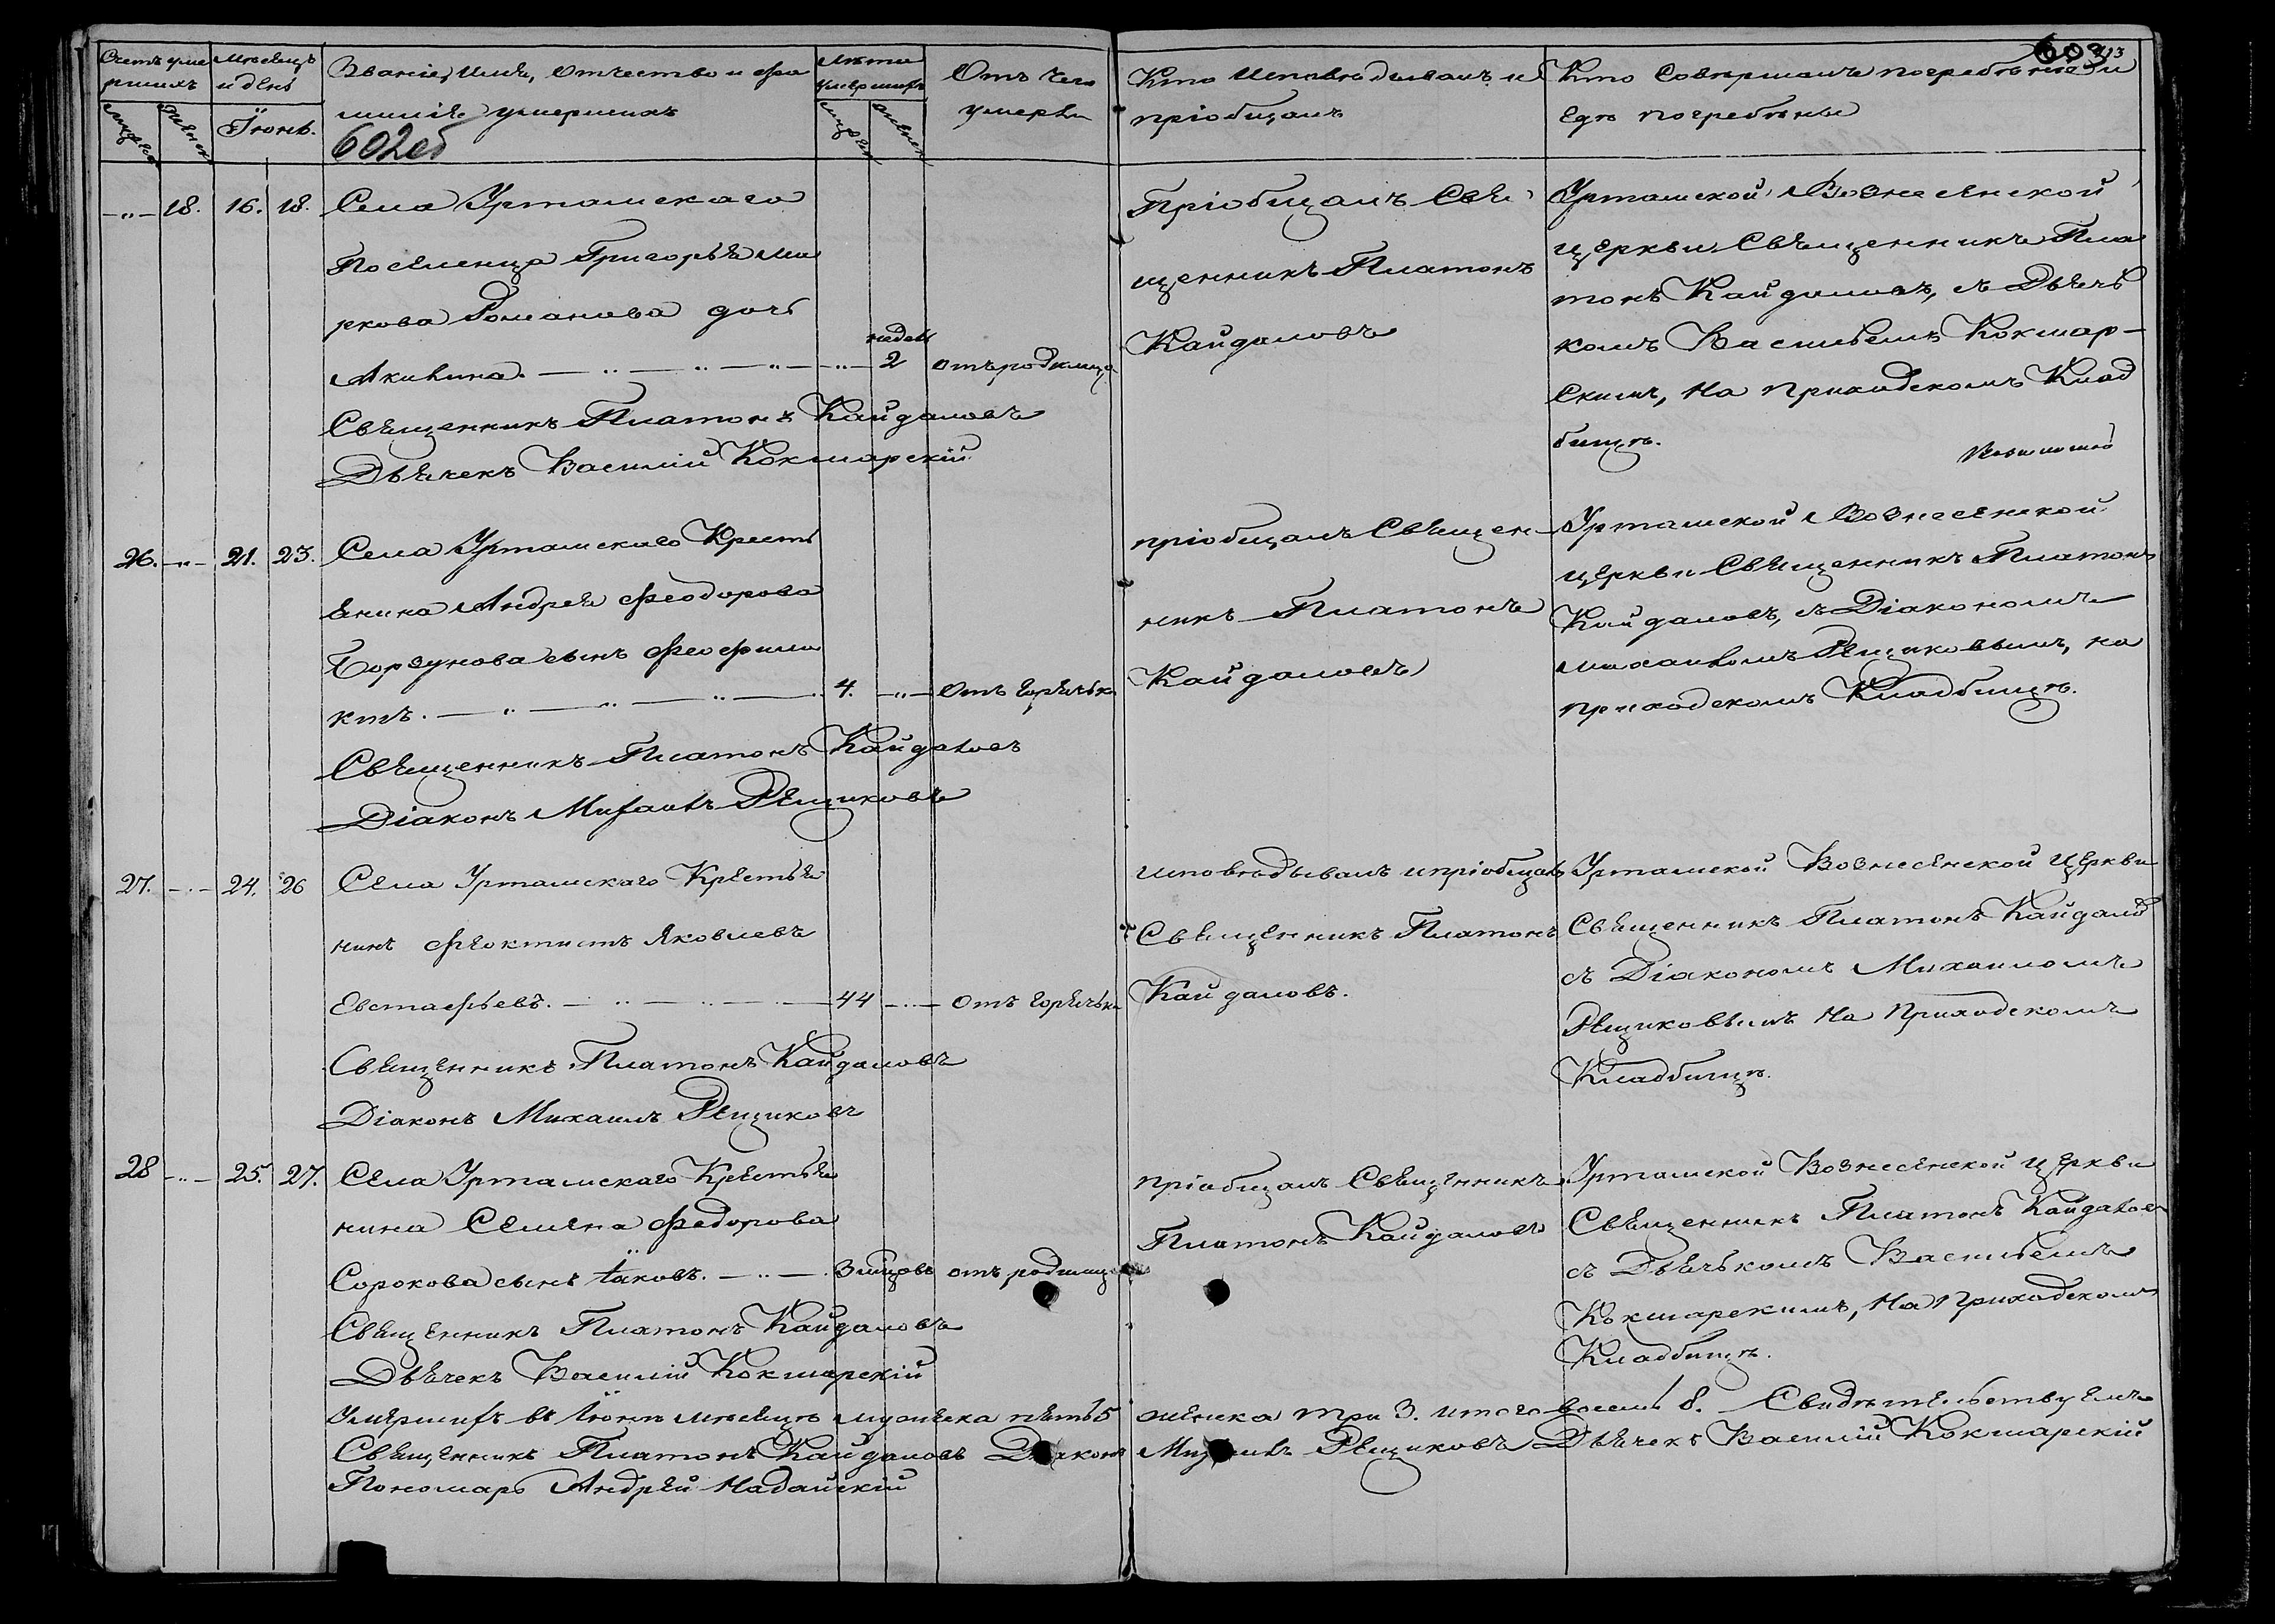 Счетъ уме
ршихъ
Мѣсяцъ
и день
Званіе, имя, отчество и фа
милія умершихъ
Лѣта
умершихъ
Отъ чего
умерли
Кто исповѣдывалъ и
пріобщалъ
Кто совершалъ погребеніе и
гдѣ погребены
Іюнь.
602об
603
18. 16. 18. Села Уртамскаго
Поселенца Григорья Ма
ркова Романова дочь
недел
Акилина. 2 отъ родимца
Священникъ Платонъ Кайдаловъ
Дьячекъ Василій Кокшарскій
Пріобщалъ Свя
щенникъ Платонъ
Кайдаловъ
Уртамской Вознесенской
церкви Священникъ Пла
тонъ Кайдаловъ, съ Дьяч
комъ Васильемъ Кокшар-
скимъ, на приходскомъ Клад
бищѣ.
26. 21. 23. Села Уртамскаго Кресть
янина Андрея Феодорова
Борзунова сынъ Феофила
ктъ. 4. Отъ горячьки
Священникъ Платонъ Кайдаловъ
Діаконъ Михаилъ Рещиковъ
пріобщалъ Священ-
никъ Платонъ
Кайдаловъ
Уртамской Вознесенской
церкви Священникъ Платонъ
Кайдаловъ, съ Діакономъ
Михаиломъ Рещиковымъ, на
приходскомъ Кладбищѣ.
27. 24. 26 Села Уртамскаго Крестья
нинъ Феоктистъ Яковлевъ
Евстафьевъ. 44 Отъ горячьки
Священникъ Платонъ Кайдаловъ
Діаконъ Михаилъ Рещиковъ
исповѣдывалъ и пріобщалъ
Священникъ Платонъ
Кайдаловъ.
Уртамской Вознесенской Церкви
Священникъ Платонъ Кайдалов
съ Діакономъ Михаиломъ
Рещиковымъ на Приходскомъ
Кладбищѣ.
28 25. 27. Села Уртамскаго Крестья
нина Семена Федорова
Сорокова сынъ Іаковъ. 3 мѣсцовъ отъ родимца
Священникъ Платонъ Кайдаловъ
Дьячекъ Василій Кокшарскій
пріобщалъ Священникъ
Платонъ Кайдаловъ
Уртамской Вознесенской церкви
Священникъ Платонъ Кайдаловъ
съ Дьячькомъ Васильемъ
Кокшарскимъ, на Приходскомъ
Кладбищѣ.
Умершихъ въ Іюнѣ мѣсяцѣ мужеска пять 5 женска три 3. итого восемь 8. Свидѣтельствуемъ
Священникъ Платонъ Кайдаловъ Діаконъ Михаилъ Рещиковъ Дьячекъ Василій Кокшарскій
Пономарь Андрей Надайскій